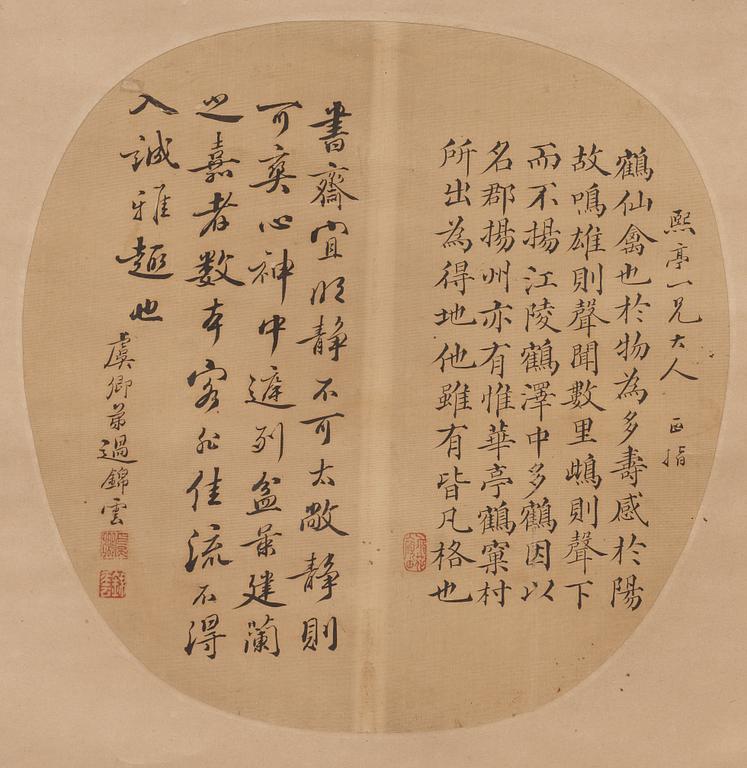 熙亭一兄大人 正指
鶴仙禽也於物為多壽感於陽
故鳴雄則聲聞數里鷓則聲下
而不揚江陵鶴澤中多鶴因以
名郡揚州亦有惟華亭鶴窠村
所出為得地他雖有皆凡格也
書齋宜明静不可太敞静則
可爽心神中遮列盆景建蘭
之嘉者數本客非佳流不得
入誠雅趣也
虞卿弟過錦雲